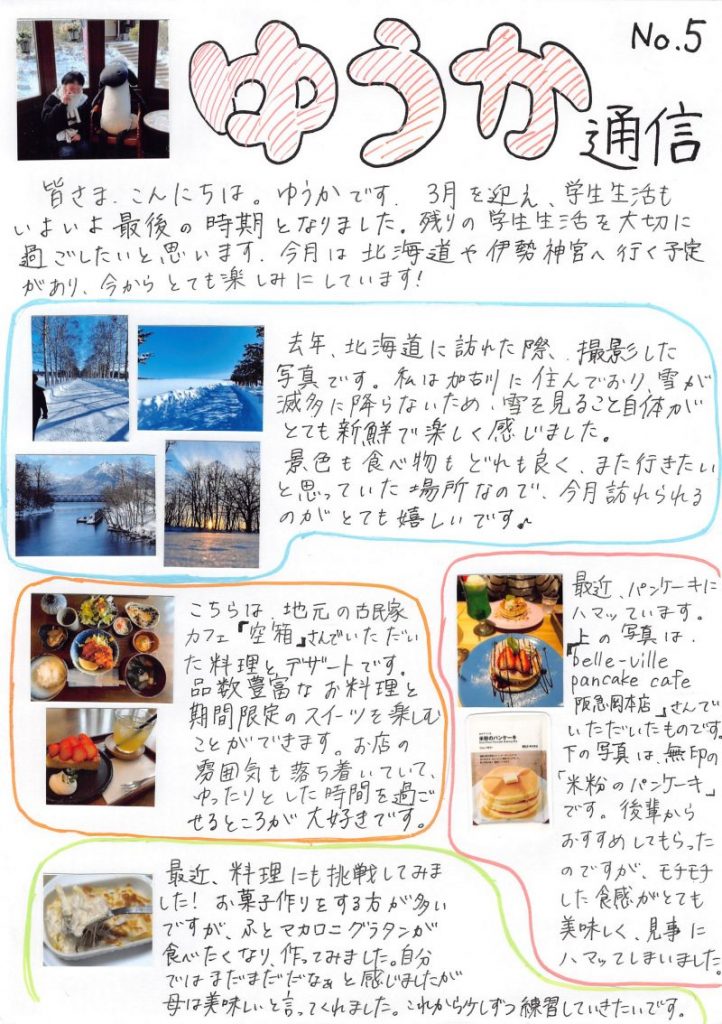 No.5
ゆうか通信
皆さま、こんにちは。ゆうかです。3月を迎え、学生生活も
いよいよ最後の時期となりました。残りの学生生活を大切に
過ごしたいと思います。今月は北海道や伊勢神宮へ行く予定
があり、今からとても楽しみにしています!
去年、北海道に訪れた際、撮影した
写真です。私は加古川に住んでおり、雪が
滅多に降らないため、雪を見ること自体が
とても新鮮で楽しく感じました。
景色も食べ物もどれも良く、また行きたい
と思っていた場所なので、今月訪れられる
のがとても嬉しいです♪
こちらは、地元の古民家
カフェ『空箱』さんでいただい
た料理と、デザートです。
品数豊富なお料理と
期間限定のスイーツを楽しむ
ことができます。お店の
雰囲気も落ち着いていて、
ゆったりとした時間を過ご
せるところが大好きです。
最近、パンケーキに
ハマッています。
上の写真は、
『belle-ville
pancake cafe
阪急岡本店』さんで
いただいたものです。
下の写真は、無印の
「米粉のパンケーキ」
です。後輩から
おすすめしてもらった
のですが、モチモチ
した食感がとても
美味しく、見事に
ハマッてしまいました。
米粉のパンケーキ
最近、料理にも挑戦してみま
した!お菓子作りをする方が多い
ですが、ふとマカロニグラタンが
食べたくなり、作ってみました。自分
ではまだまだだなぁと感じましたが
母は美味しいと言ってくれました。これから少しずつ練習していきたいです。